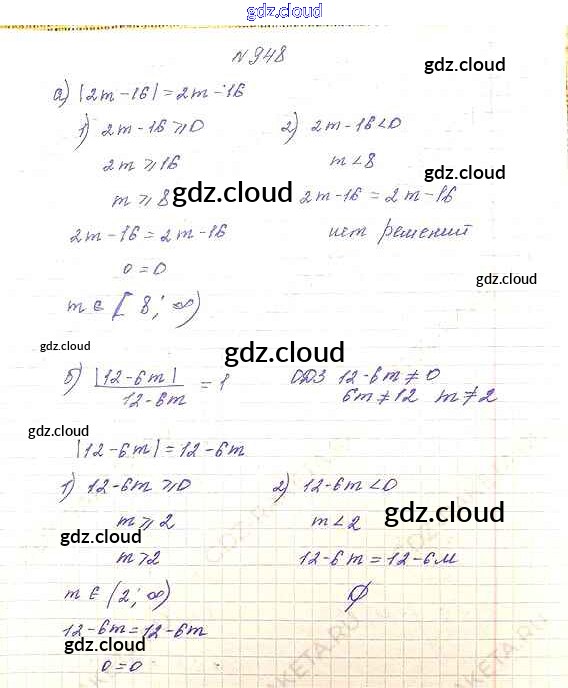 gdz.cloud
N 948
gdz.cloud
а) |2m-16| = 2m-16
1) 2m-16 ⩾ 0 2) 2m-16 < 0
2m ⩾ 16 m < 8
gdz.cloud
m ⩾ 8 gdz.cloud 2m-16 = 2m-16
2m-16 = 2m-16 нет решений
0 = 0
gdz.cloud
m ∈ [8; ∞)
gdz.cloud
gdz.cloud
б) |12-6m| / 12-6m = 1 ОДЗ 12-6m ≠ 0
6m ≠ 12 m ≠ 2
gdz.cloud
|12-6m| = 12-6m
1) 12-6m ⩾ 0 2) 12-6m < 0
m ⩾ 2 m < 2
gdz.cloud
gdz.cloud
m > 2 12-6m = 12-6м
m ∈ (2; ∞) ∅
12-6m = 12-6m
gdz.cloud
0 = 0